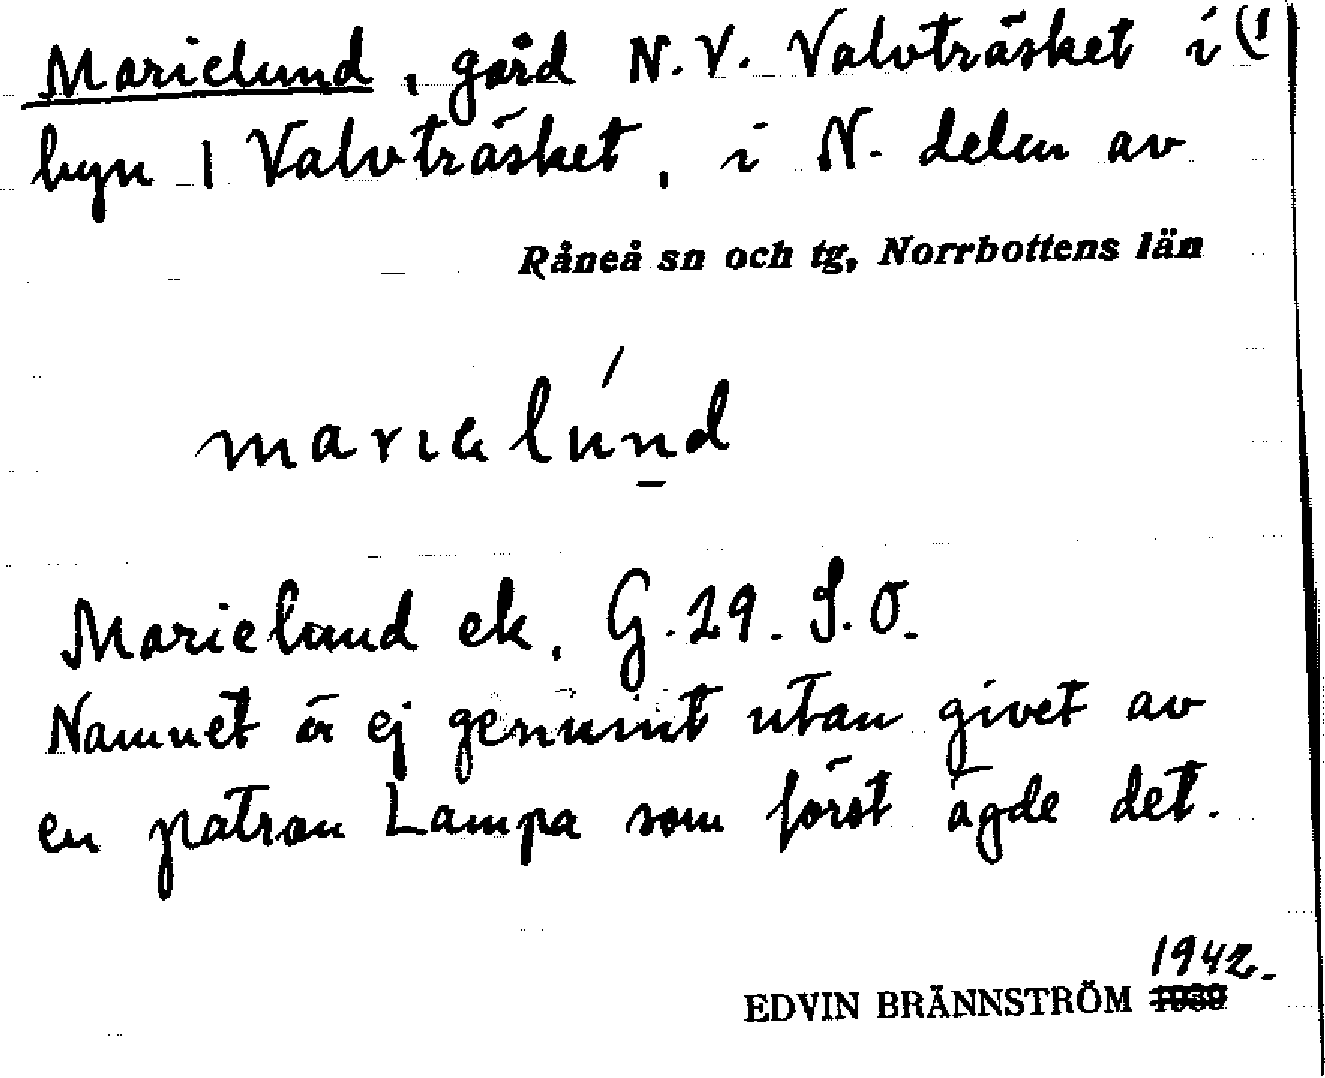 Marielund, gård N.V. Valvträsket i (1
byn 1 Valvträsket, i N. delen av
Råneå sn och tg, Norrbottens län
marıalúnd
Marielund ek. G. 29. S.O.
Namnet är ej genuint utan givet av
en patron Lampa som först ägde det.
1942.
EDVIN BRÄNNSTRÖM 1939